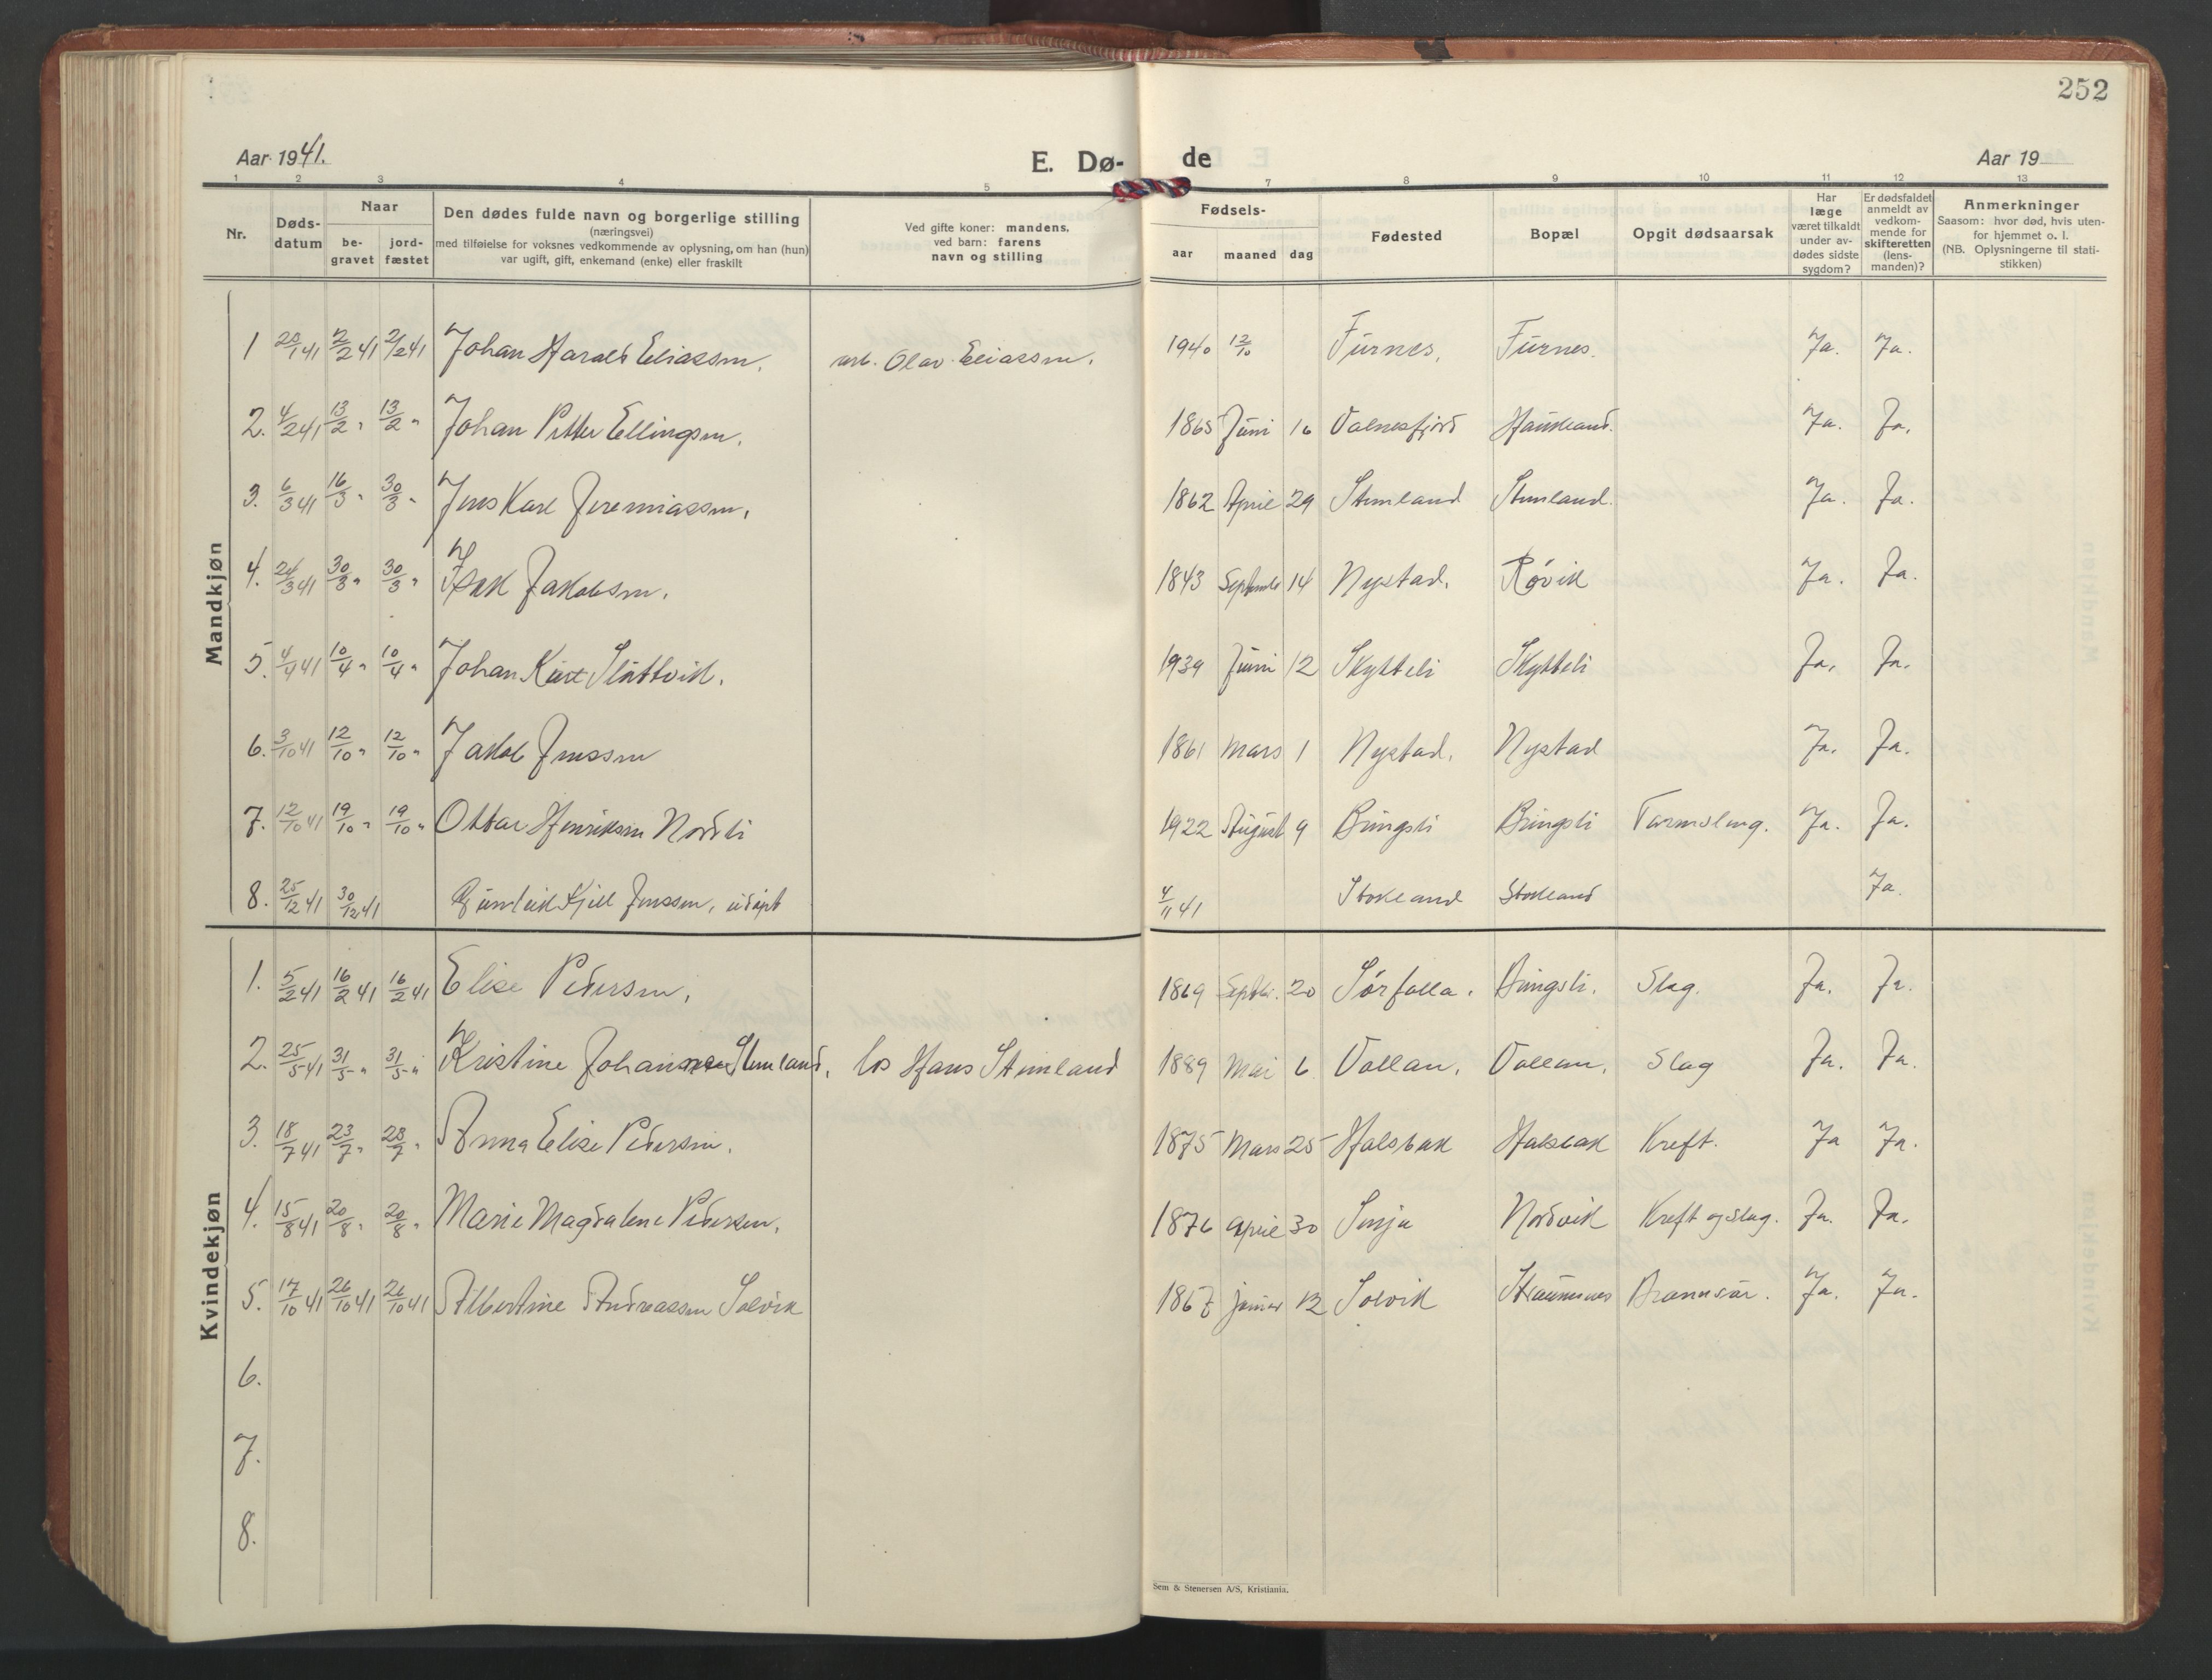 252
Aar 1941.
E. Dø- de
Aar 19
1 2 3 4 5 7 8 9 10 11 12 13
Nr. Døds-datum Naar be-gravet jord-fæstet Den dødes fulde navn og borgerlige stilling (næringsvei) med tilføielse for voksnes vedkommende av oplysning, om han (hun) var ugift, gift, enkemand (enke) eller fraskilt Ved gifte koner: mandens, ved barn: farens navn og stilling Fødsels- aar maaned dag Fødested Bopæl Opgit dødsaarsak Har læge været tilkaldt under av-dødes sidste sygdom? Er dødsfaldet anmeldt av vedkom-mende for skifteretten (lens-manden)? Anmerkninger Saasom: hvor død, hvis uten-for hjemmet o. l. (NB. Oplysningerne til stati-stikken)
Mandkjøn
1 28/1 41 2/2 41 2/2 41 Johan Harald Eliassen. arb. Olav Eliassen. 1940 12/10 Furnes. Furnes. Ja. Ja.
2. 4/2 41 13/2 " 13/2 " Johan Petter Ellingsen. 1865 Juni 16 Valnesfjord Haukland. Ja. Ja.
3. 6/3 41 16/3 " 30/3 " Jens Karl Jeremiassen. 1862 April 29 Stemland Stemland. Ja. Ja.
4. 24/3 41 30/3 " 30/3 " Isak Jakobsen. 1843 September 14 Nystad. Røvik Ja. Ja.
5. 4/4 41 10/4 " 10/4 " Johan Kurt Slåttvik. 1939 Juni 12 Skytteli Skytteli Ja. Ja.
6. 3/10 41 12/10 " 12/10 " Jakob Jenssen 1861 Mars 1 Nystad. Nystad Ja. Ja.
7. 12/10 41 19/10 " 19/10 " Ottar Henriksen Nordli 1922 August 9 Bringsli Bringsli Tarmslyng. Ja. Ja.
8. 25/12 41 30/12 41 Gunleik Kjell Jenssen, udøpt 4/11 41 Stokland Stokland Ja.
Kvindekjøn
1. 5/2 41 16/2 41 16/2 41 Elise Pedersen. 1869 Septbr. 20 Sørfolla. Bringsli. Slag. Ja. Ja.
2. 25/5 41 31/5 " 31/5 " Kristine Johansen Stemland. los Hans Stemland 1889 Mai 6 Vollan. Vollan. Slag Ja. Ja.
3. 18/7 41 23/7 " 23/7 " Anna Elise Pedersen. 1875 Mars 25 Halsbak Halsbak Kreft. Ja Ja.
4. 15/8 41 20/8 " 20/8 " Marie Magdalene Pedersen. 1876 April 30 Senja Nordvik Kreft og slag. Ja. Ja.
5. 17/10 41 26/10 41 26/10 41 Albertine Andreassen Solvik 1867 januar 12 Solvik Straumnes Brannsår. Ja. Ja.
6.
7.
8.
Sem & Stenersen A/S, Kristiania.